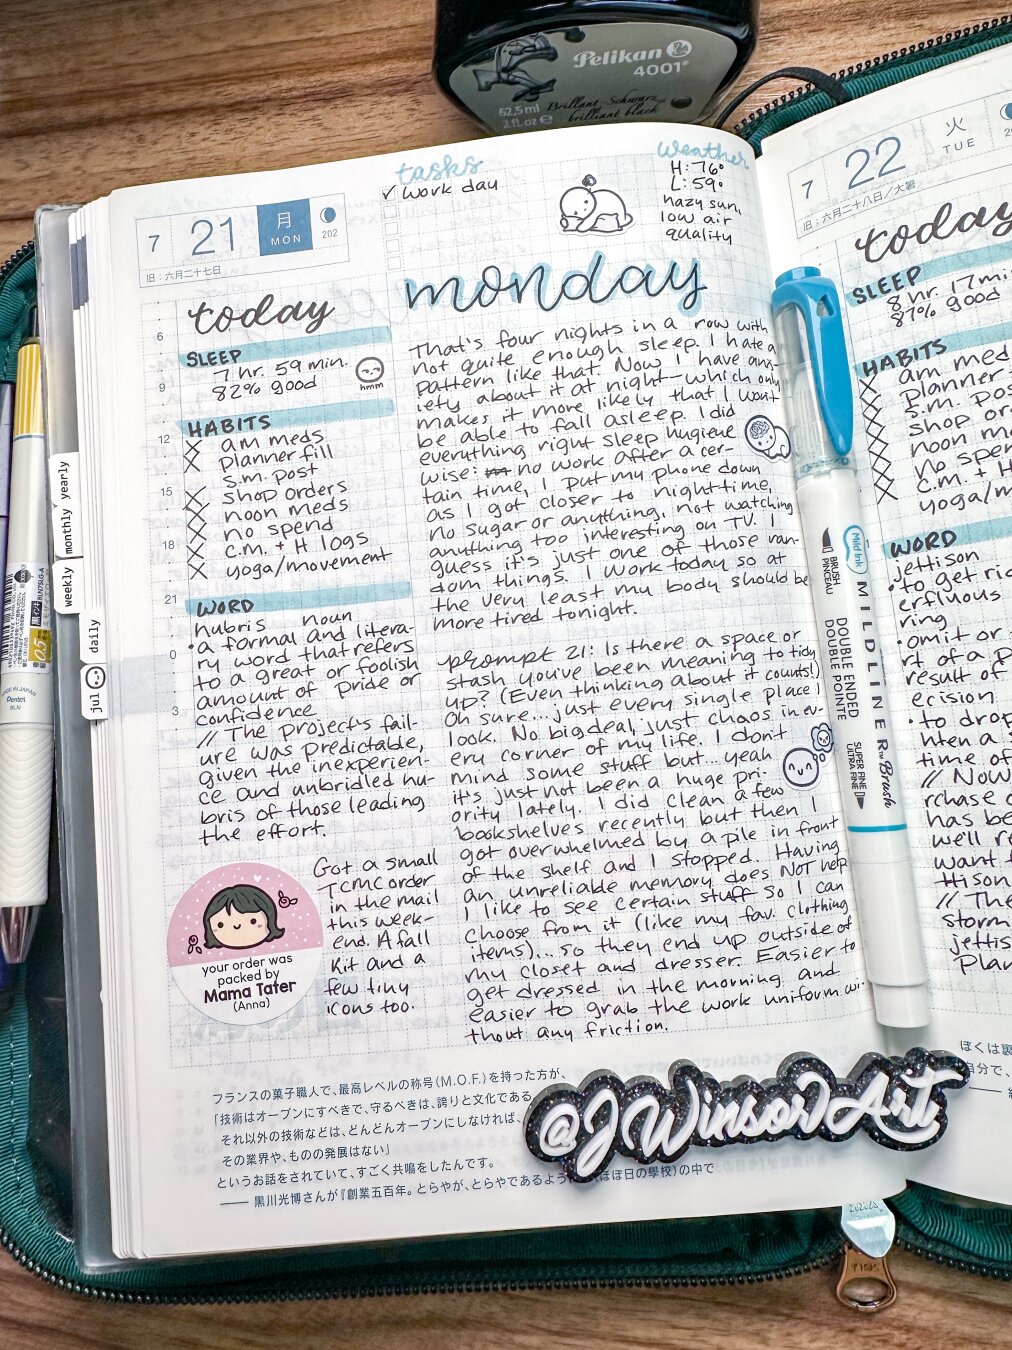 Pelikan
4001®
62,5 ml
2 fl.oz e
Brillant-Schwarz
brilliant black
7
21
月
MON
202
旧:六月二十七日
tasks
✓ work day
Weather
H: 76°
L: 59°
hazy sun,
low air
quality
today
SLEEP
7 hr. 59 min.
82% good
hmm
HABITS
X am meds
X planner fill
s.m. post
X shop orders
X noon meds
X no spend
X c.m. + H logs
X yoga/movement
WORD
hubris noun
•a formal and litera-
ry word that refers
to a great or foolish
amount of pride or
confidence
// The project's fail-
ure was predictable,
given the inexperien-
ce and unbridled hu-
bris of those leading
the effort.
6
9
12
15
18
21
0
3
your order was
packed by
Mama Tater
(Anna)
Got a small
TCMC order
in the mail
this week-
end. A fall
kit and a
few tiny
icons too.
monday
That's four nights in a row with
not quite enough sleep. I hate a
pattern like that. Now I have anx-
iety about it at night—which only
makes it more likely that I won't
be able to fall asleep. I did
everything right sleep hugiene
wise: no work after a cer-
tain time, I put my phone down
as I got closer to nighttime,
no sugar or anything, not watching
anything too interesting on TV. I
guess it's just one of those ran-
dom things. I work today so at
the very least my body should be
more tired tonight.
prompt 21: Is there a space or
stash you've been meaning to tidy
up? (Even thinking about it counts!)
Oh sure...just every single place I
look. No big deal, just chaos in ev-
ery corner of my life. I don't
mind some stuff but...yeah
it's just not been a huge pri-
ority lately. I did clean a few
bookshelves recently but then I
got overwhelmed by a pile in front
of the shelf and I stopped. Having
an unreliable memory does NOT help
I like to see certain stuff so I can
choose from it (like my fav. clothing
items)...so they end up outside of
my closet and dresser. Easier to
get dressed in the morning and
easier to grab the work uniform wi-
thout any friction.
フランスの菓子職人で、最高レベルの称号(M.O.F.)を持った方が、
「技術はオープンにすべきで、守るべきは、誇りと文化である
それ以外の技術などは、どんどんオープンにしなければ、
その業界や、ものの発展はない」
というお話をされていて、すごく共鳴をしたんです。
—— 黒川光博さんが『創業五百年。とらやが、とらやであるように
ほぼ日の學校)の中で
monthly yearly
weekly
daily
jul
0.5
Pentel
BLN
MADE IN JAPAN
BLN75LG-A
Mild Ink
MILDLINER™ Brush
BRUSH
PINCEAU
DOUBLE ENDED
DOUBLE POINTE
SUPER FINE
ULTRA FINE
@JWinsorArt
7
22
火
TUE
旧:六月二十八日/大暑
today
SLEEP
8 hr. 17 min
87% good
HABITS
X am med
X planner
X s.m. pos
X shop or
X noon m
X no spen
X c.m. + H
X yoga/m
WORD
jettison
•to get ri
erfluous
ring
•omit or
rt of a p
result of
ecision
•to drop
hten a
time of
// Now
rchase
has be
we'll re
want t
ttison
// The
storm
jettis
plan
ぼくは裏
自分で、